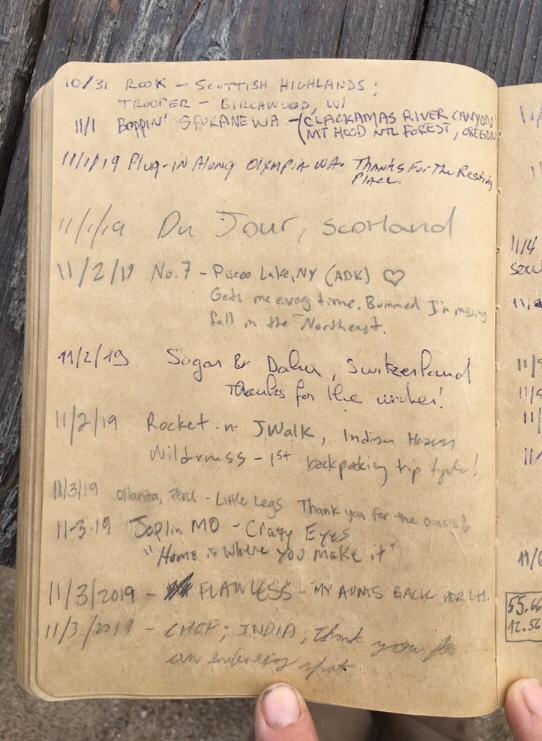 10/31 ROOK - SCOTTISH HIGHLANDS;
TROOPER - BIRCHWOOD, WI
11/1 BOPPIN' SPOKANE WA - (CLACKAMAS RIVER CANYON
MT HOOD NTL FOREST, OREGON
11/1/19 PLUG-IN ALONG OLYMPIA WA. THANKS FOR THE RESTING
PLACE.
11/1/19 Du Jour, Scotland
11/2/19 No.7 - Piseco Lake, NY (ADK) ♡
Gets me every time. Bummed I'm missing
fall in the Northeast.
11/2/19 Sugar & Dahu, Switzerland
Thanks for the wishes!
11/2/19 Rocket-n-JWalk, Indian Heaven
Wilderness - 1st backpacking trip together!
11/3/19 Ollanta, Peru - Little Legs Thank you for the oasis!
11-3-19 Joplin MO - Crazy Eyes
"Home is where you make it"
11/3/2019 - FLAWLESS - MY AUNTS BACK
11/3/2019 - CHEF; INDIA; Thank you for
an
11/4
11/6
55.66
12.56